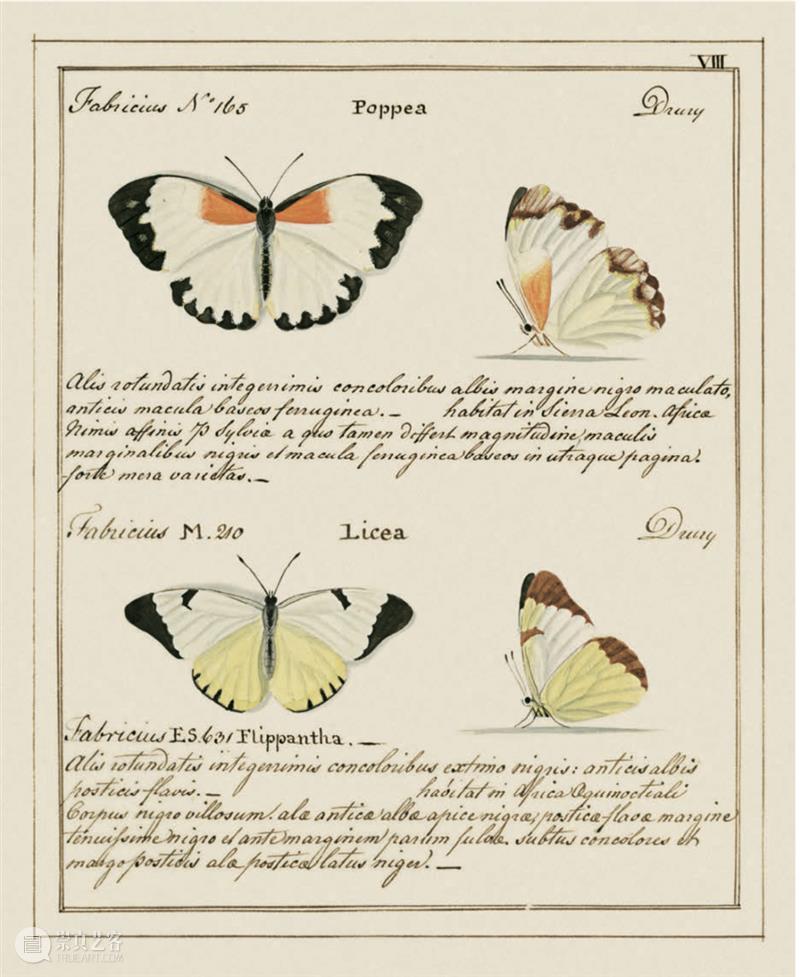 VIII
Fabricius Nº 165 Poppea Drury
Alis rotundatis integerrimis concoloribus albis margine nigro maculato,
anticis macula baseos ferruginea. — habitat in Sierra Leon. Africæ
Nimis affinis P Sylviæ a qus tamen differt magnitudine, maculis
marginalibus nigris et macula ferruginea baseos in utraque pagina.
forte mera varietas. —
Fabricius M. 210 Licea Drury
Fabricius E.S. 631 Flippantha. —
Alis rotundatis integerrimis concoloribus extimo nigris: anticis albis
posticis flavis. — habitat in Africa Æquinoctiali
Corpus nigro villosum. alæ anticæ albæ apice nigræ, posticæ flavæ margine
tenuissime nigro et ante marginem parum fulvæ. subtus concolores et
margo posticis alæ posticæ latus niger. —
崇真艺客
TRUEART.COM